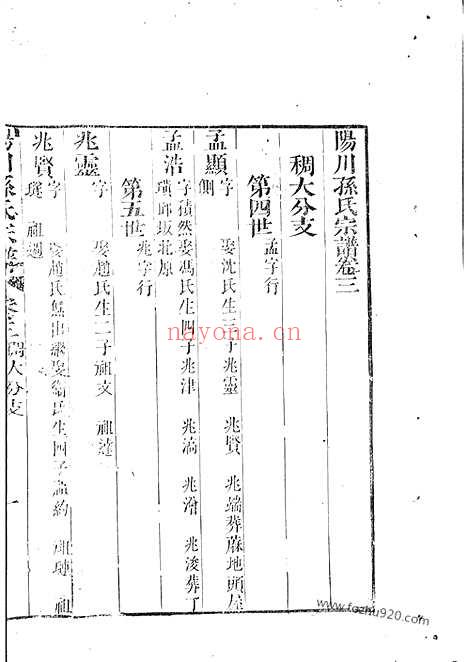 陽川孫氏宗譜卷三
稠大分支
第四世 孟字行
孟顯 字 娶沈氏生三子兆靈 兆賢 兆端葬蔴地頭屋
側
孟浩 字積然娶馮氏生四子兆津 兆滈 兆滑 兆浚葬丁
璜郎坂北原
第五世 兆字行
兆靈 字 娶趙氏生二子祖文 祖達
兆賢 字 趙氏 出 娶 氏生四子 約 祖璉 祖
祖遇
陽川孫氏宗譜 卷三 稠大分支 一
nayona.cn
www.fozhu920.com